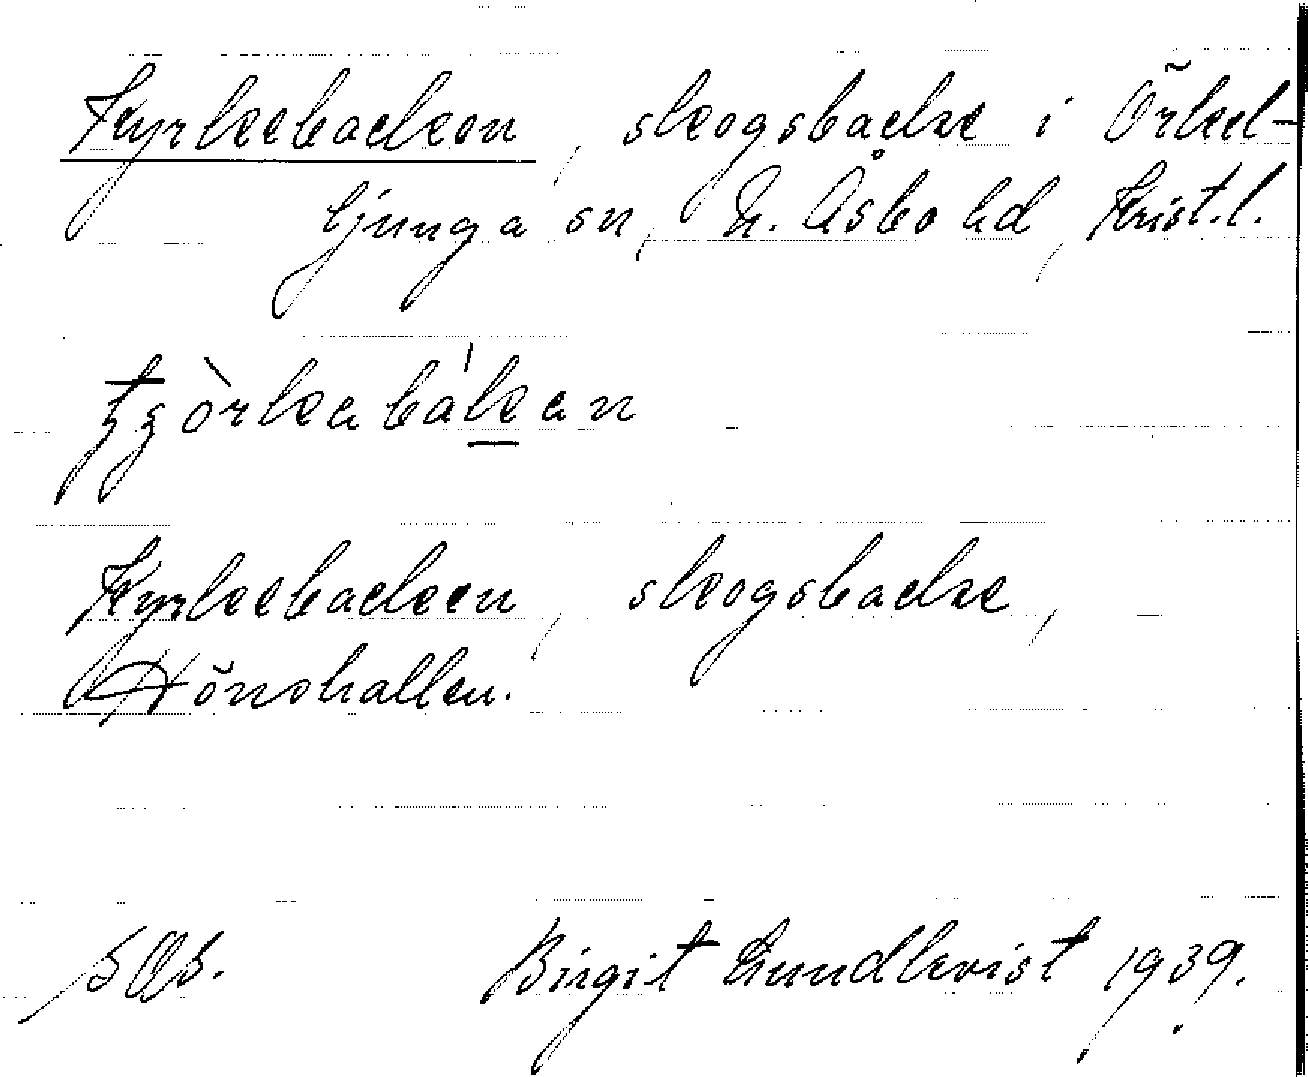 Kyrkebacken, skogsbacke i Örkel-
ljunga sn, N. Åsbo hd, Krist.l.
Kyrkebacken, skogsbacke,
Hönshallen.
Birgit Lundkvist 1939.